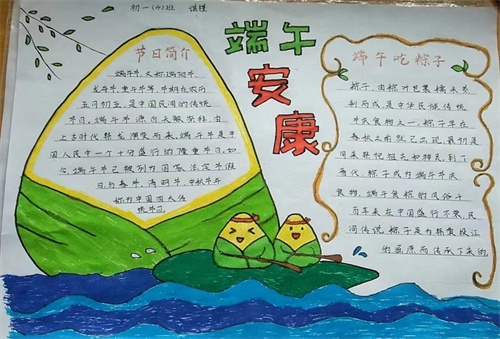 初一(4)班
端午
安康
节日简介
端午节,又称端阳节,
龙舟节,重午节等,节期在农历
五月初五,是中国民间的传统
节日,端午节源自天象崇拜,由
上古时代祭龙演变而来,端午节是中
国人民中一个十分盛行的隆重节日,如
今,端午节已被列为国家法定节假
日,与春节,清明节,中秋节并
称为中国四大传
统节日。
端午吃粽子
粽子,由粽叶包裹糯米蒸
制而成,是中华民族传统
节庆食物之一,粽子早在
春秋之前就已出现,最初是
用来祭祀祖先和神灵,到了
晋代,粽子成为端午节庆
食物,端午食粽的风俗千
百年来在中国盛行不衰,民
间传说,粽子是为祭奠投江
的屈原而传承下来的。